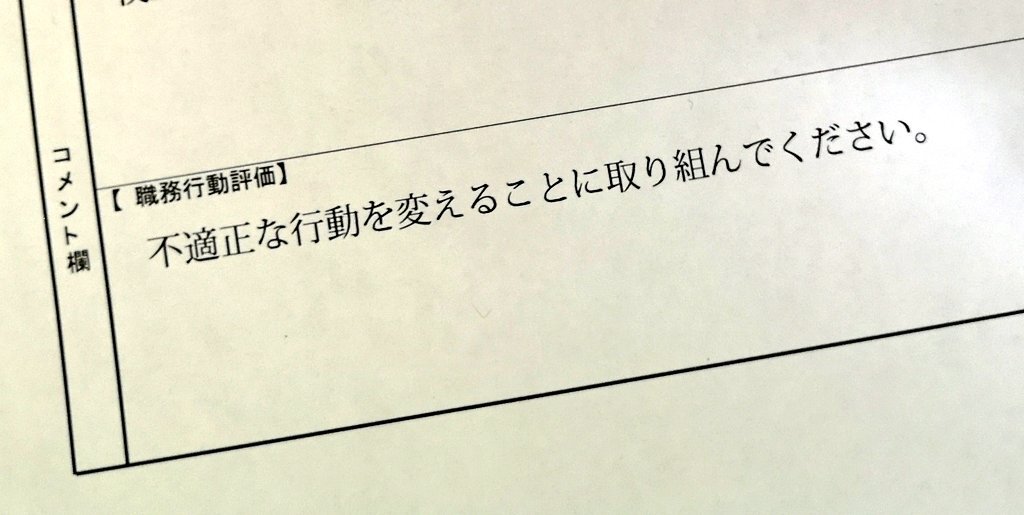 コメント欄
【 職務行動評価】
不適正な行動を変えることに取り組んでください。